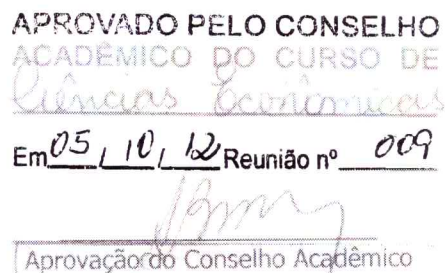 APROVADO PELO CONSELHO
ACADÊMICO DO CURSO DE
Ciências Econômicas
Em 05 / 10 / 12 Reunião nº 009
Aprovação do Conselho Acadêmico